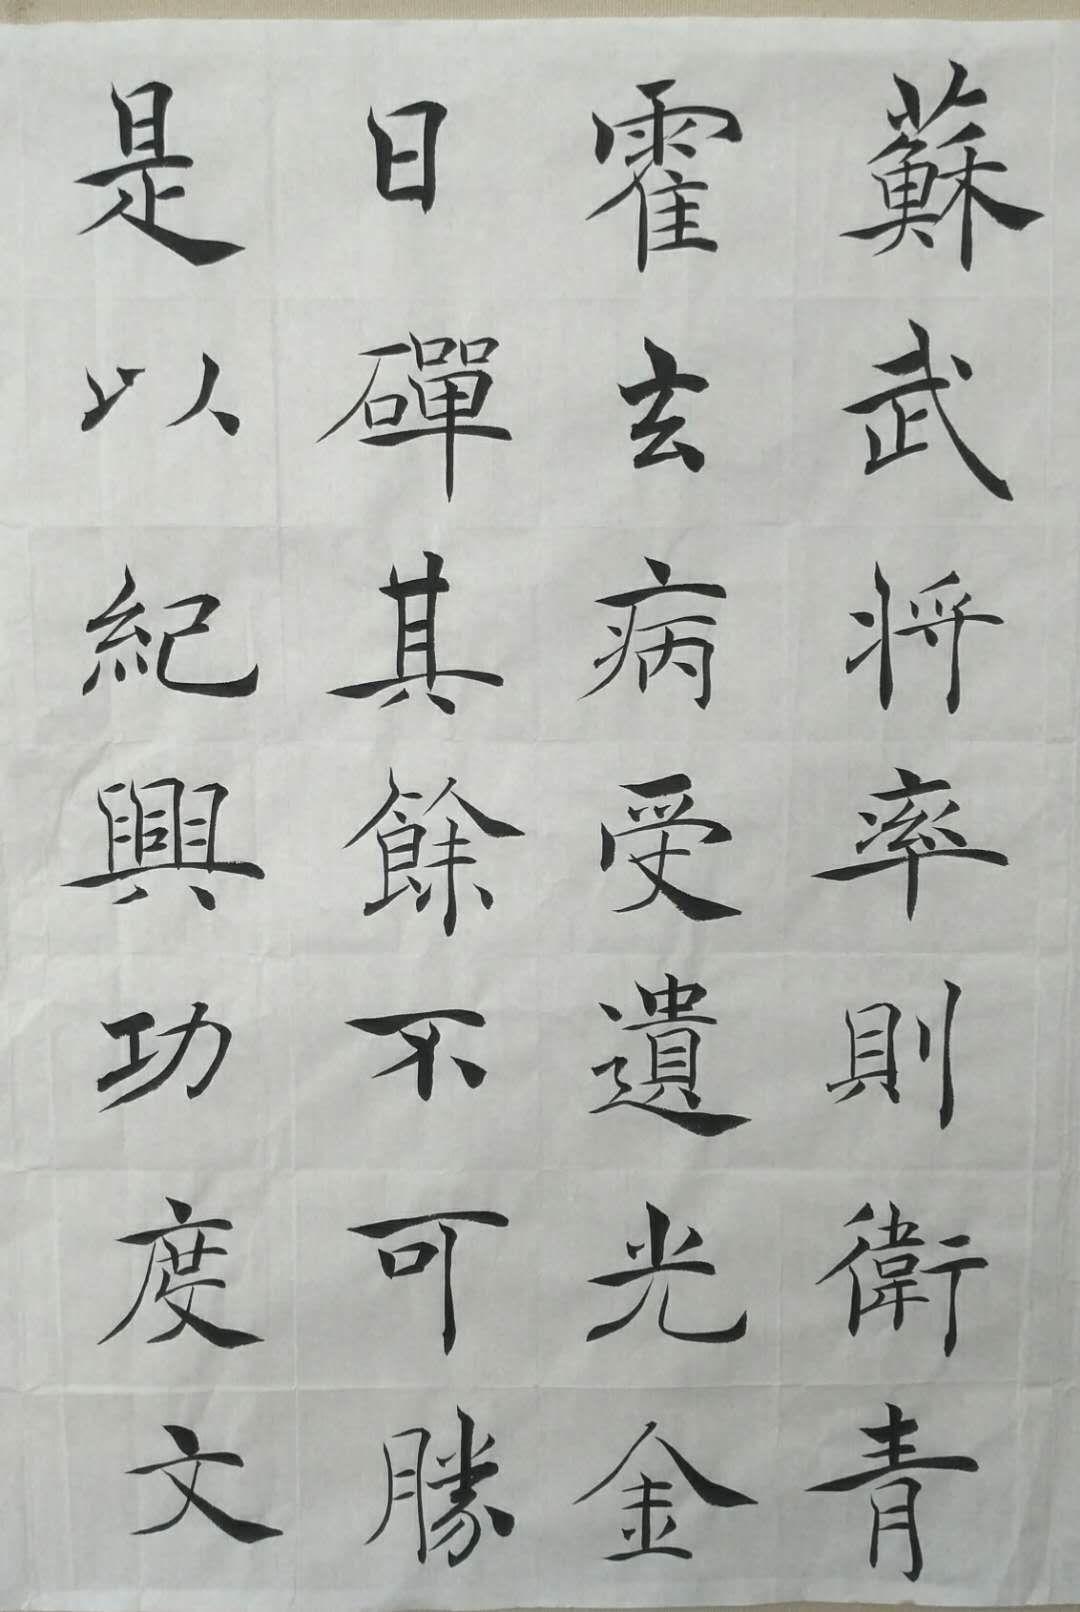 蘇武將率則衛青
霍玄病受遺光金
日磾其餘不可勝
是以紀興功度文